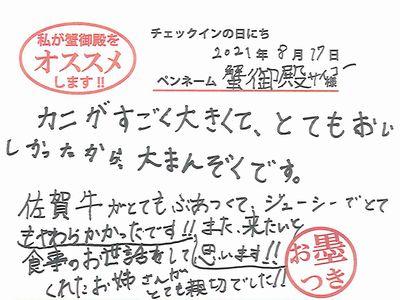 私が蟹御殿を
オススメ
します!!
チェックインの日にち
2021年 8月 17日
ペンネーム 蟹御殿サイコー様
カニがすごく大きくて、とてもおい
しかったから、大まんぞくです。
佐賀牛がとてもぶあつくて、ジューシーでとて
もやわらかかったです!! また、来たいと
思います!!
食事のお世話をして
くれたお姉さんが
とても親切でした!!
お墨
つき